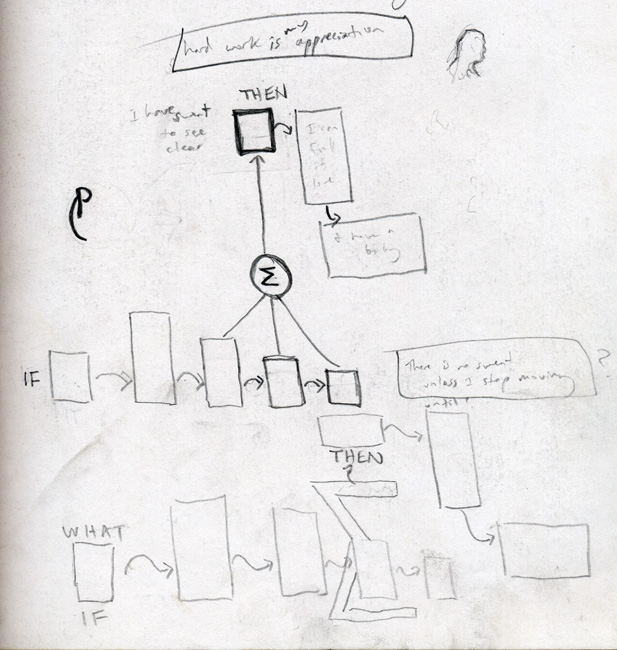 hard work is my appreciation
THEN
I have sweat
to see
clear
I can
I have a
Σ
IF
There is no sweat
unless I stop moving
until?
?
THEN
?
WHAT
IF